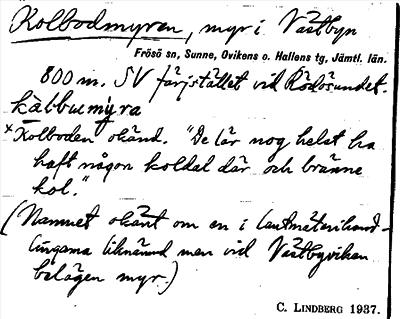 Kolbodmyren, myr i Västbyn
Frösö sn, Sunne, Ovikens o. Hallens tg, Jämtl. län.
800 m. SV färjstället vid Rödösundet.
kàbbumỳra
×Kolboden okänd. "De lär nog helst ha
haft någon koldal där och bränne
kol."
(Namnet okänt om en i lantmäterihand-
lingarna liknämnd men vid Västbyviken
belägen myr.)
C. LINDBERG 1937.